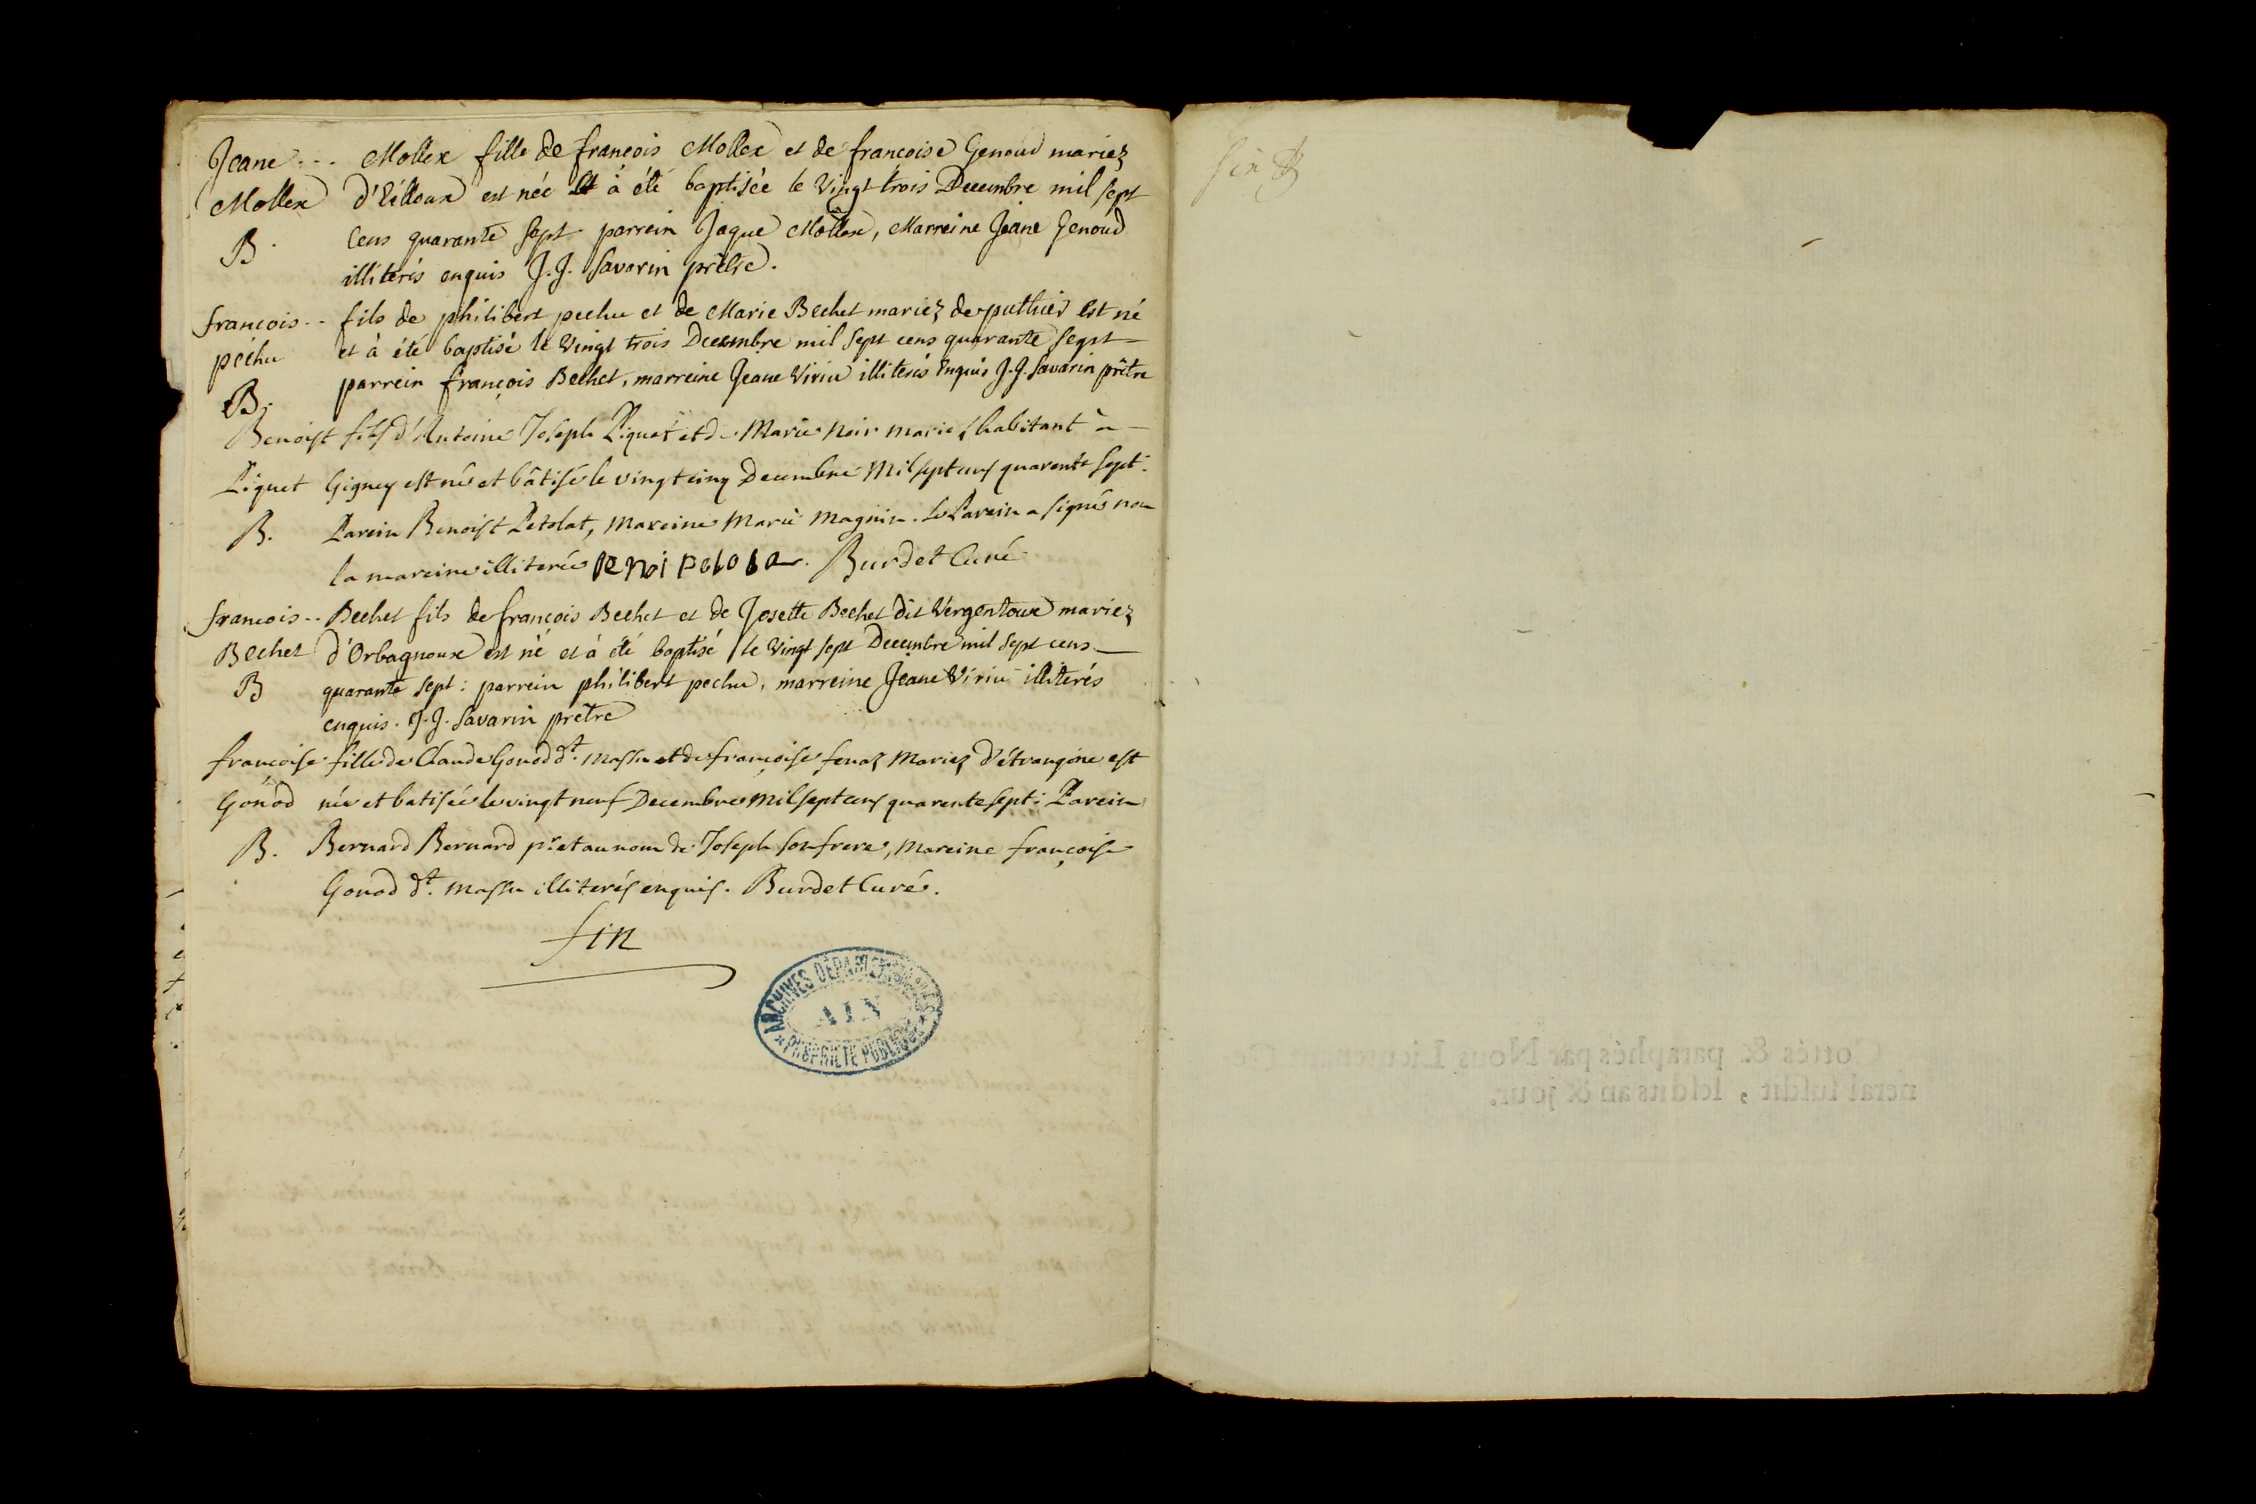 Jeane - - - Mollex fille de francois Mollex et de francoise Genoud mariez
Mollex d'Eilloux est née et à été baptisée le vingt trois Decembre mil sept
B. Cens quarante sept parrein Jaque Mollex, Marreine Jeane Genoud
illiterés enquis J. J. Savarin prêtre.
francois - - fils de philibert pechu et de Marie Bechet mariez de puthier est né
péchu et à été baptisé le vingt trois Decembre mil sept cens quarante sept
parrein françois Bechet, marreine Jeane Viriu illiterés enquis J. J. Savarin prêtre
B.
Benoist fils d'Antoine Joseph Piquet et de Marie Noir mariez habitant à
Piquet Gigney est né et bâtisé le vingt cinq Decembre mil sept cens quarente sept.
B. Parein Benoist Petolat, Mareine Marie Magnin. Le Parein a signés non
la mareine illiterée Benoi Burdet Curé
francois - - Bechet fils de françois Bechet et de Josette Bechet dit Vergontoux mariez
Bechet d'Orbagnoux est né et à été baptisé le vingt sept Decembre mil sept cens
B quarante sept : parrein philibert pechu, marreine Jeane Viriu illiterés
enquis. J. J. Savarin prêtre
françoise fille de Claude Gonod dt. Massu et de françoise fenaz Mariez d'étrangine est
Gonod née et batisée le vingt neuf Decembre mil sept cens quarente sept : Parein
B. Bernard Bernard pr. et au nom de Joseph son frere, Mareine françoise
Gonod dt. Massu illiterés enquis. Burdet Curé.
fin
ARCHIVES DÉPARTEMENTALES
AIN
PROPRIÉTÉ PUBLIQUE
fin
Cottés & paraphés par Nous Lieutenant
néral susdit, lesdits an & jour.